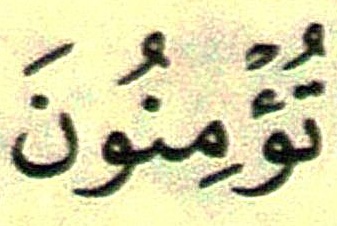 تُؤْمِنُونَ